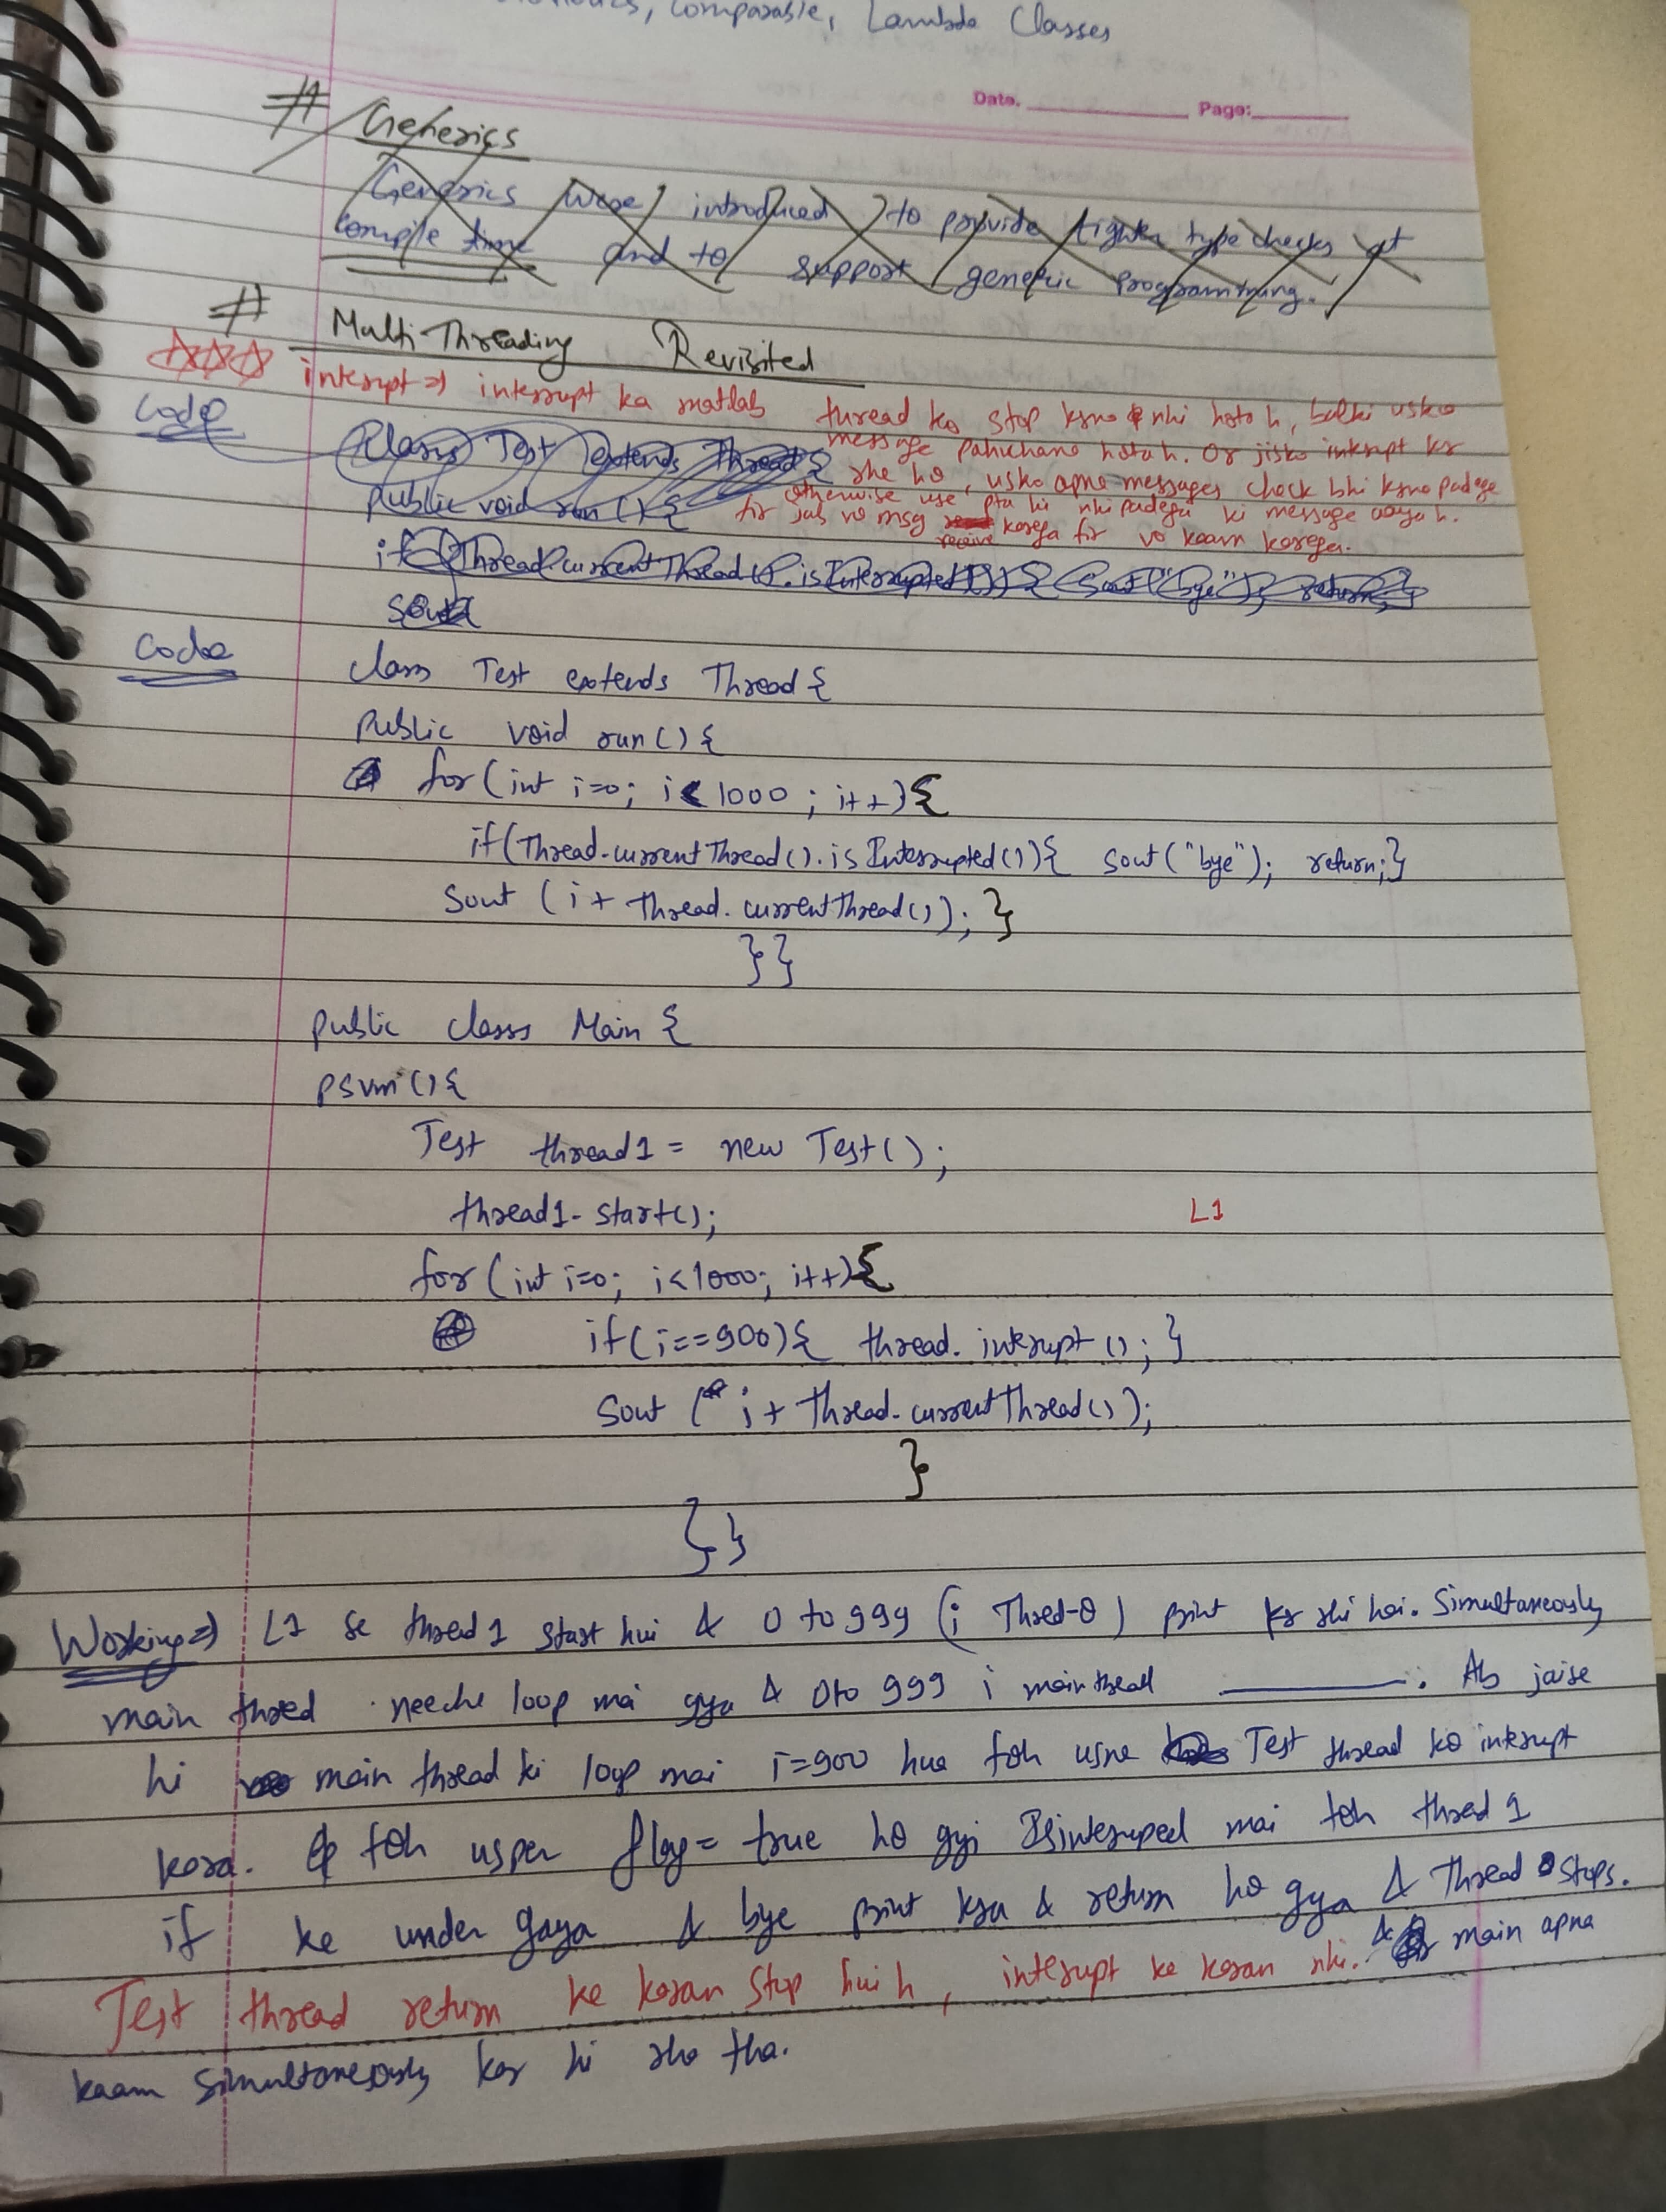 Comparable, Lambda Classes
Date. Page:
# Generics
Generics were introduced to provide tighter type checks at
compile time and to support generic programming.
# Multi-Threading Revisited
interupt => interrupt ka matlab thread ko stop krna nhi hota h, balki usko
message pahuchana hota h. Or jisko interupt kr
rhe ho, usko apne messages check bhi krne padege
otherwise use pta hi nhi padega ki message aaya h.
fir jab vo msg receive karega fir vo kaam karega.
Code
Class Test extends Thread {
public void run () {
if (Thread.currentThread().isInterrupted()) { Sout("bye"); return; }
Sout
Code
class Test extends Thread {
public void run () {
for (int i=0; i< 1000 ; i++) {
if(Thread.currentThread().isInterrupted()){ Sout("bye"); return;}
Sout (i + Thread.currentThread()); }
}}
public class Main {
psvm () {
Test thread1 = new Test();
thread1.start(); L1
for (int i=0; i<1000; i++) {
if(i==900){ thread.interupt (); }
Sout (i + Thread.currentThread());
}
}}
Working => L1 se thread 1 start hui & 0 to 999 (i Thred-0) print kr rhi hai. Simultaneously
main thred neeche loop mai gya & 0 to 999 i main thread ______. Ab jaise
hi main thread ki loop mai i=900 hua toh usne Test thread ko interupt
kara. toh usper flag = true ho gyi Isinteruped mai toh thread 1
if ke under gaya & bye print kra & return ho gya & Thread stops.
Test thread return ke karan stop hui h, interupt ke karan nhi. & main apna
kaam simultaneously kar hi rha tha.